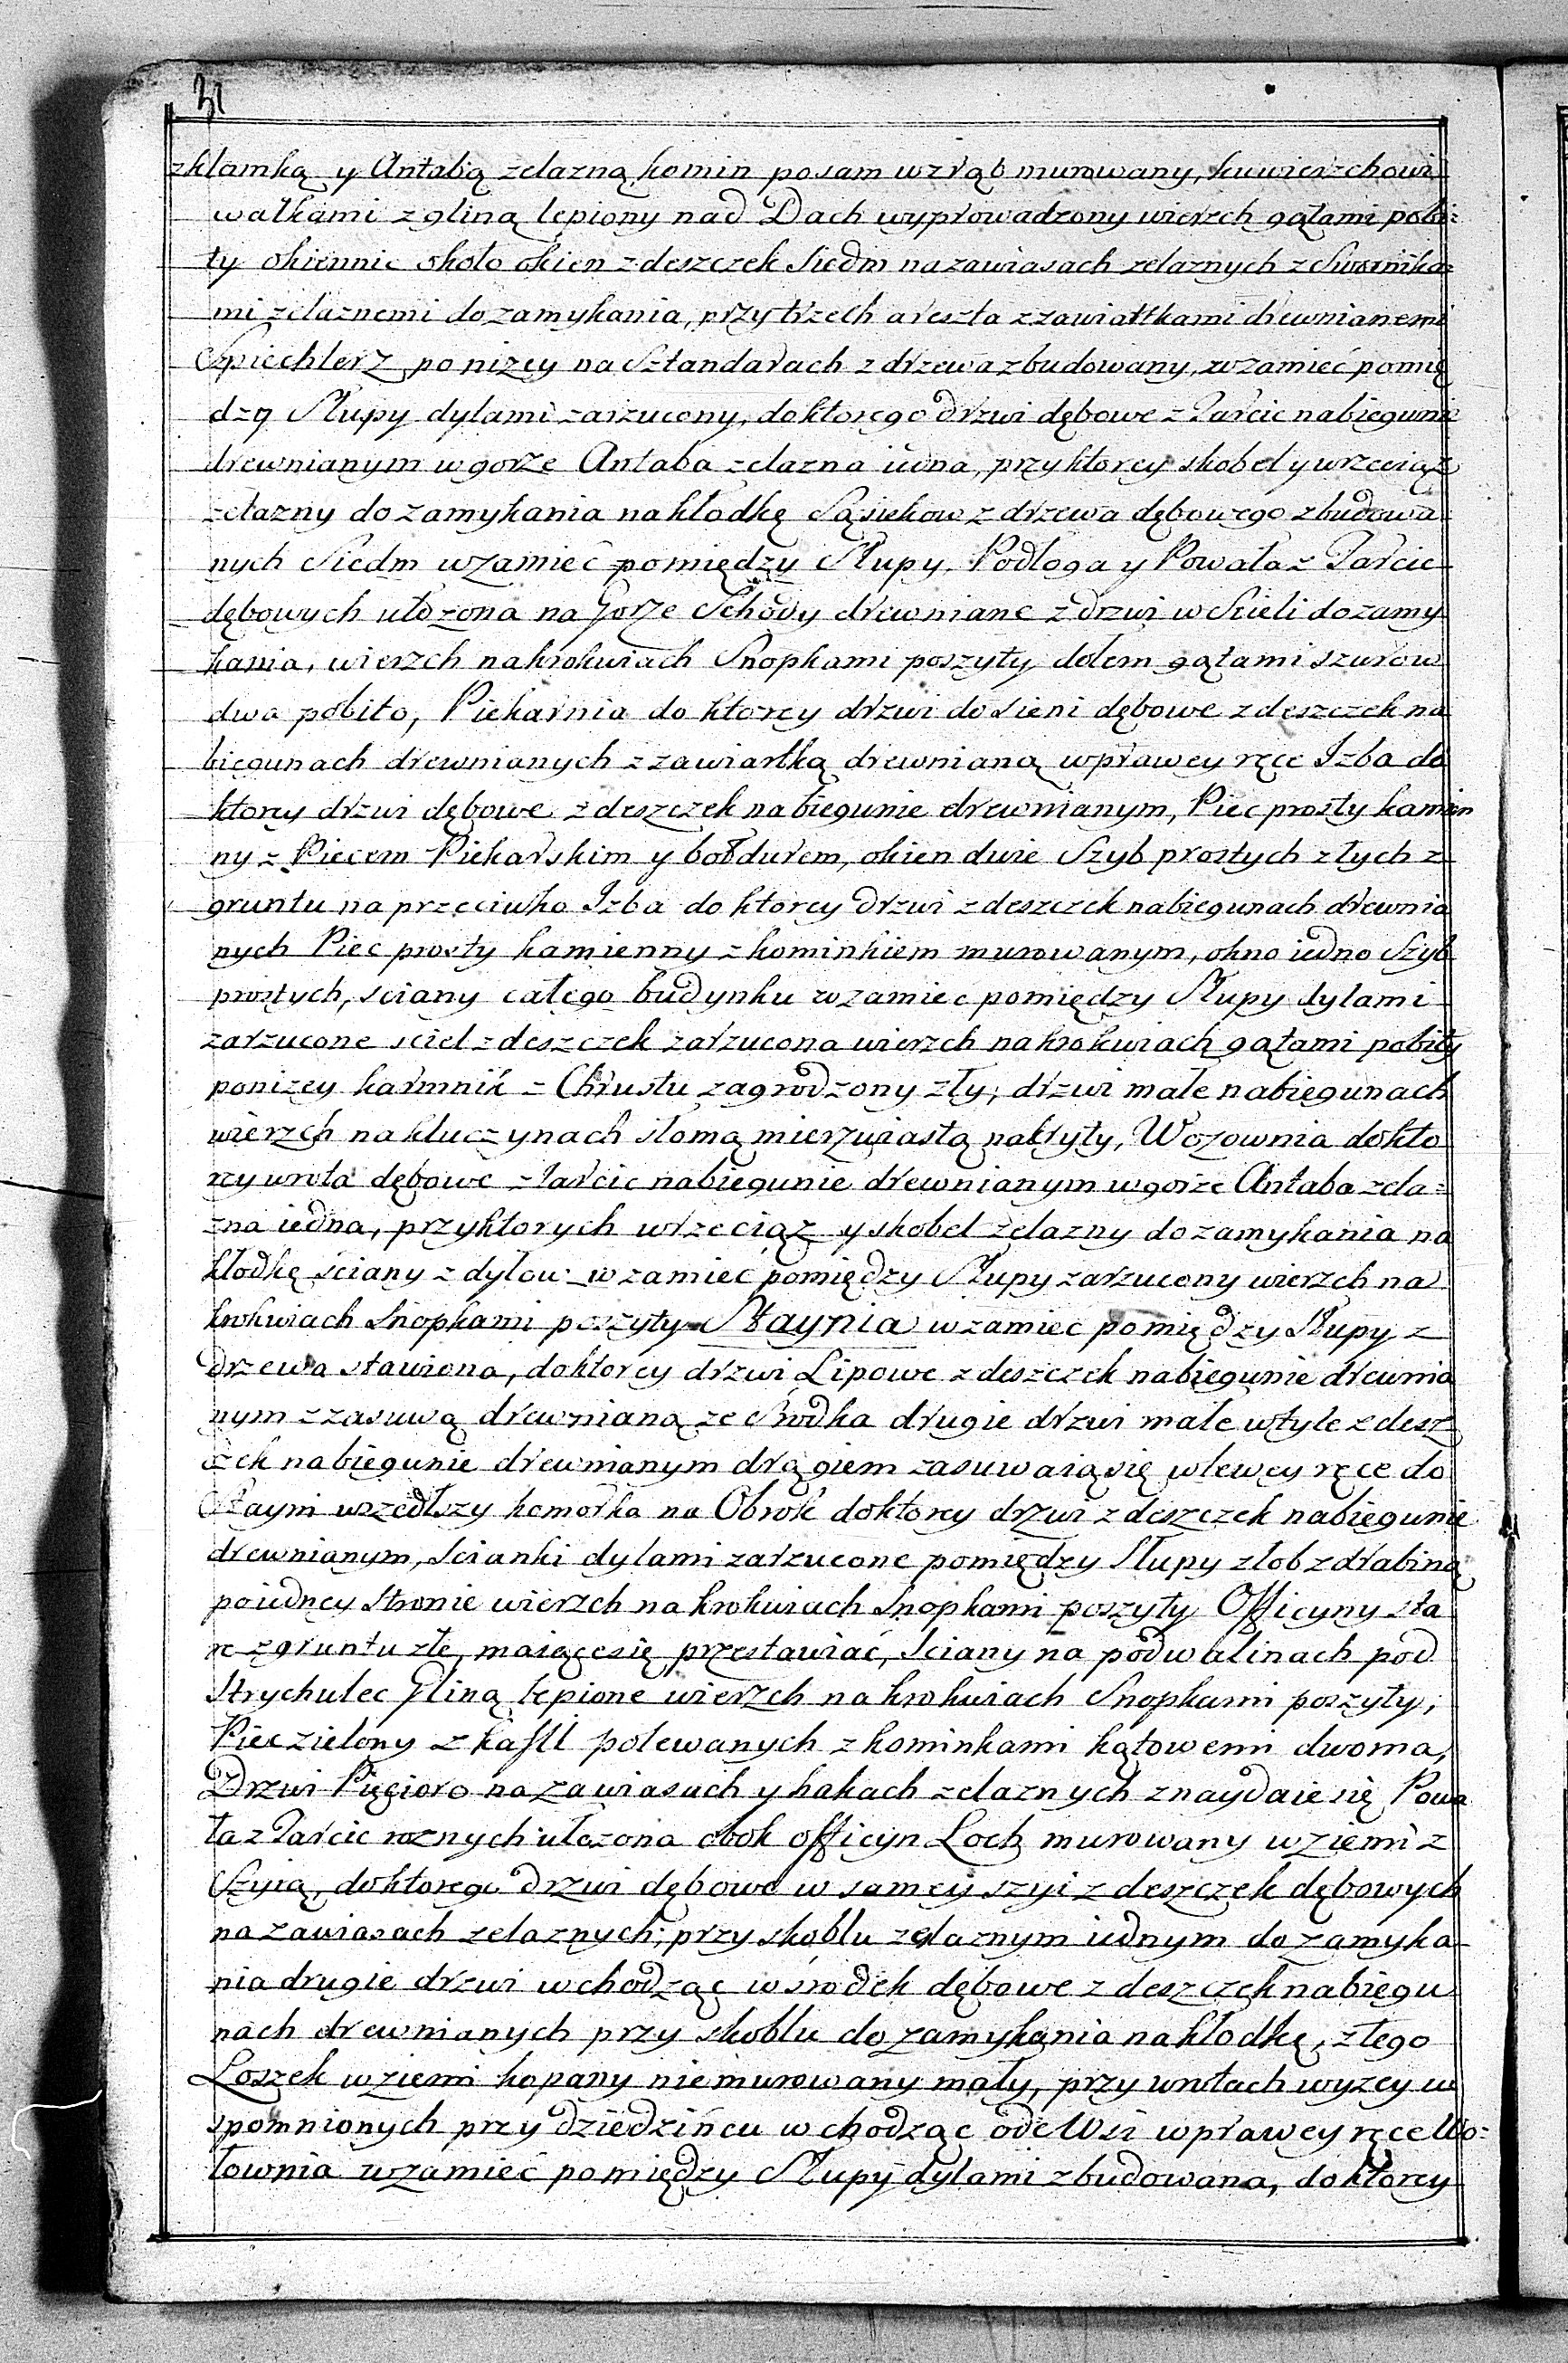 31
z klamką y Antabą zelazną komin po sam wzrąb murowany, ku wierzchowi
wałkami z gliną lepiony nad Dach wyprowadzony wierzch gątami pobi=
ty okiennic około okien z deszczek Siedm na zawiasach zelaznych z Swornika=
mi zelaznemi do zamykania, przy trzech areszta z zawiartkami drewnianemi
Szpiechlerz ponizey na Sztandarach z drzewa zbudowany, w zamieć pomię
dzy Słupy dylami zarzucony, do ktorego drzwi dębowe z Tarcic na biegunie
drewnianym w gorze Antaba zelazna iedna, przy ktorey skobel y wrzeciąż
zelazny do zamykania na kłodkę Sąsiekow z drzewa dębowego zbudowa
nych Siedm w zamieć pomiędzy Słupy, Podłoga y Powała z Tarcic
dębowych ułożona na Gorze Schody drewniane z drzwi w Scieli do zamy
kania, wierzch na krokwiach Snopkami poszyty dolem gątami szurow
dwa pobito, Piekarnia do ktorey drzwi do sieni dębowe z deszczek na
biegunach drewnianych z zawiartką drewnianą w prawey ręce Izba do
ktorey drzwi dębowe z deszczek na biegunie drewnianym, Piec prosty kamien
ny z Piecem Piekarskim y bołdurem, okien dwie Szyb prostych złych z
gruntu na przeciwko Izba do ktorey drzwi z deszczek na biegunach drewnia
nych Piec prosty kamienny z kominkiem murowanym, okno iedno Szyb
prostych, sciany całego budynku w zamiec pomiędzy Słupy dylami
zarzucone sciel z deszczek zarzucona wierzch na krokwiach gątami pobity
ponizey karmnik z Chrustu zagrodzony zły, drzwi małe na biegunach
wierzch na kluczynach słomą mierzwiastą nakryty, Wozownia do kto
rey wrota dębowe z tarcic na biegunie drewnianym w gorze Antaba zela=
zna iedna, przy ktorych wrzeciąz y skobel zelazny do zamykania na
kłodkę ściany z dylow w zamieć pomiędzy Słupy zarzucony wierzch na
krokwiach Snopkami poszyty Staynia w zamieć pomiędzy Słupy z
drzewa stawiona, do ktorey drzwi Lipowe z deszczek na biegunie drewnia
nym z zasuwą drewnianą ze Srodka drugie drzwi małe w tyle z desz
czek na biegunie drewnianym drągiem zasuwaią się w lewey ręce do
Stayni wszedłszy komorka na Obrok do ktorey drzwi z deszczek na biegunie
drewnianym, Scianki dylami zarzucone pomiędzy Słupy złob z drabiną
po iedney Stronie wierzch na krokwiach Snopkami poszyty Officyny sta
re z gruntu złe, maiące się przestawiać, Sciany na podwalinach pod
Strychulec Gliną lepione wierzch na krokwiach Snopkami poszyty,
Piec zielony z kafli polewanych z kominkami kątowemi dwoma,
Drzwi Pięcioro na zawiasach y hakach zelaznych znayduie się Powa
ła z Tarcic roznych ułozona obok officyn Loch murowany w ziemi z
Szyią, do ktorego drzwi dębowe w samey szyi z deszczek dębowych
na zawiasach zelaznych, przy skoblu zelaznym iednym do zamyka
nia drugie drzwi wchodząc w srodek dębowe z deszczek na biegu
nach drewnianych przy skoblu do zamykania na kłodkę, z tego
Loszek w ziemi kopany nie murowany mały, przy wrotach wyzey w
spomnionych przy dziedzińcu wchodząc ode Wsi w prawey ręce Wo=
łownia w zamieć pomiędzy Słupy dylami zbudowana, do ktorey